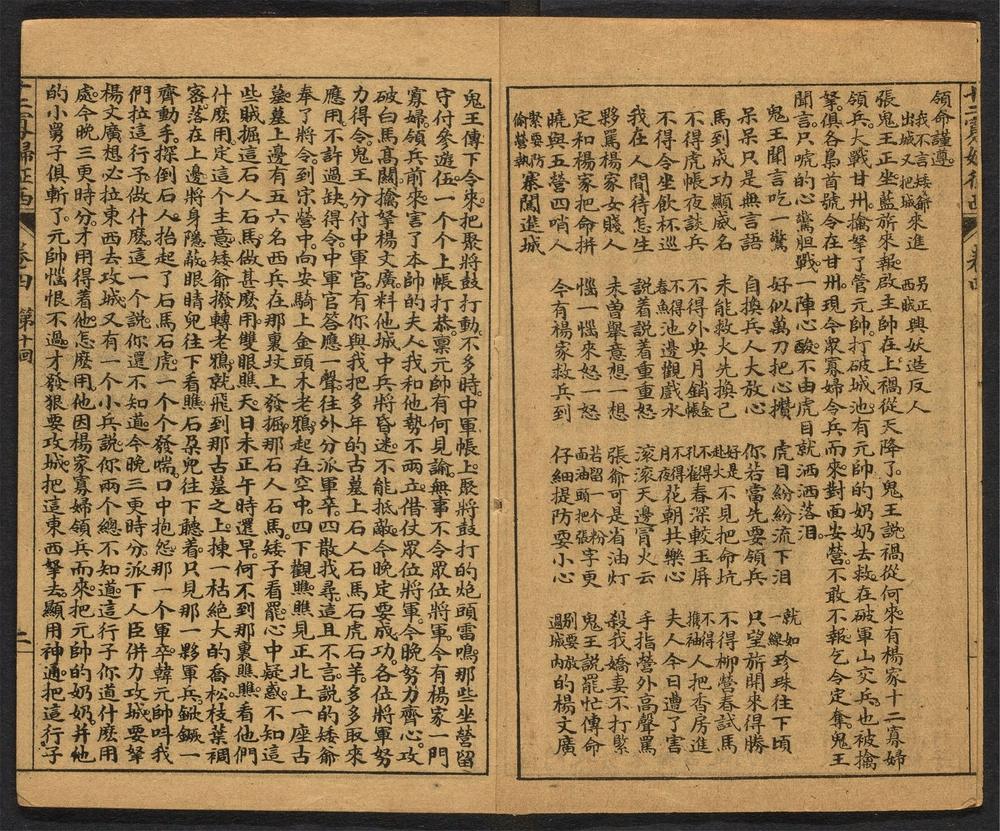 領命謹遵。
我不言矮爺來進 另正與妖造反人
出城又把城 西賊
張鬼王正坐藍旂來報。啟主帥在上。禍從天降了。鬼王說禍從何來。有楊家十二寡婦
領兵。大戰甘州擒拏了管元帥。打破城池有元帥的奶奶去救在破軍山交兵。也被擒
拏。俱各梟首號令在甘州。現今眾寡婦令兵而來。對面安營。不敢不報。乞令定奪。鬼王
聞言。只唬的心驚胆戰。一陣心酸。不由虎目就洒洒落淚。
鬼王聞言吃一驚 好似萬刀把心攢 虎目紛紛流下泪 就如一線珍珠往下頃
呆呆只是無言語 自換兵人大放心 你若當先要領兵 只望旂開來得勝
馬到成功顯威名 未能救火先換己 好是赴火不見把命坑 不得柳營春試馬
不得虎帳夜談兵 不得外央月銷金帳 不得孔雀春深較玉屏 不得攜袖人把香房進
我不得令坐飲杯巡 不得春魚池邊觀戲水 不得月夜花朝共樂心 夫人今日遭了害
我在人間待怎生 說着說着重重怒 滾滾天邊冒火云 手指營外高聲罵
夥罵楊家女賤人 未曾舉意想一想 張爺可是省油灯 殺我嬌妻不打緊
定和楊家把命拼 惱一惱來怒一怒 若留一個粉面油頭把張字更 鬼王說罷忙傳命
曉與五營四哨人 今有楊家救兵到 仔細提防要小心 別要放過城內的楊文廣
緊要防偷營執寨闖進城
十二寡婦征西 卷四
十二寡婦征西 卷四 第十回 二
鬼王傳下令來。把聚將鼓打動。不多時。中軍帳上。聚將鼓打的炮頭雷鳴。那些坐營留
守付參遊伍。一個個上帳打恭。禀元帥有何見諭。無事不令眾位將軍。今有楊家一門
寡婦。領兵前來。害了本帥的夫人。我和他勢不兩立。借仗眾位將軍。今晚努力齊心。攻
破白馬高關。擒拏楊文廣。料他城中兵將昏迷。不能抵敵。今晚定要成功。各位將軍努
力得令。鬼王分付中軍官。有你與我把多年的古墓上石人石馬石虎石羊多多取來
應用。不許過缺。得令。中軍官答應一聲。往外分派軍卒。四散找尋。這且不言。說的矮爺
奉了將令。到宋營中。向安騎上金頭木老鴉。起在空中。四下觀瞧。瞧見正北上一座古
墓。墓上邊有五六名西兵。在那裏坟上發掘。那石人石馬。矮子看罷。心中疑惑。不知這
些賊掘這石人石馬做甚麽用。雙眼瞧天。日未正午時還早。何不到那裏瞧瞧。看他們
什麽用。定這個主意。矮爺撥轉老鴉。就飛到那古墓之上。揀一枯絶大的喬松枝葉稠
密。落在上邊。將身隱蔽。眼睛兒往下看瞧。石朶兒往下聽着。只見那一夥軍兵。鍬鐝
齊動手。探倒石人。抬起了石馬石虎。一個個發喘。口中抱怨。那一個軍卒。韓元帥叫我
們拉這行子做什麽。這一個說你還不知道。今晚三更時分。派下人臣併力攻城。要拏
楊文廣。想必拉東西去攻城。又有一個小兵說。你兩個總不知道。這行子你道什麽用
處。今晚三更時分。才用得着他。怎麽用。他因楊家寡婦領兵而來。把元帥的奶奶。并他
的小舅子俱斬了。元帥惱恨不過。才發狠要攻城。把這東西拏去。顯用神通。把這行子